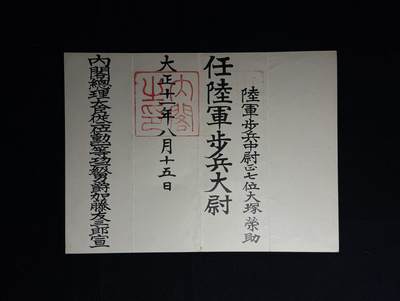 陸軍步兵中尉正七位大塚榮助
任陸軍步兵大尉
大正十二年八月十五日
内閣之印
内閣總理大臣從二位勲一等功二級男爵加藤友三郎宣